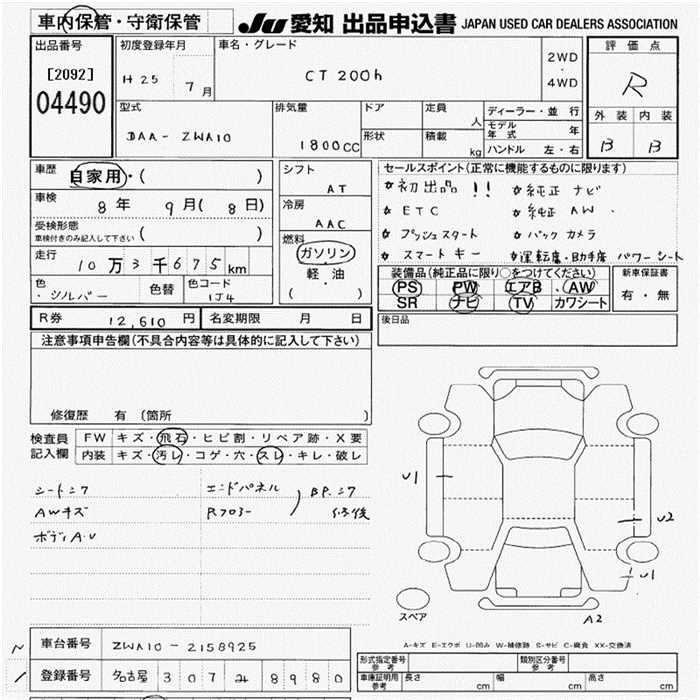 車内保管・守衛保管 JU 愛知 出品申込書 JAPAN USED CAR DEALERS ASSOCIATION
出品番号 初度登録年月 車名・グレード 評価点
[2092] H25 7月 CT 200h 2WD・4WD R
04490 型式 排気量 ドア 定員 人 ディーラー・並行 外装 内装
DAA-ZWA10 1800CC 形状 積載 kg モデル年式 年 B B
ハンドル 左・右
車歴 自家用・( ) シフト AT セールスポイント(正常に機能するものに限ります)
車検 8年 9月(8日) 冷房 AAC ☆初出品!! ☆純正ナビ
受検形態 ( ) ☆ETC ☆純正AW
車検付きのみ記入して下さい 燃料 ☆プッシュスタート ☆バックカメラ
走行 10万3千675km ガソリン ☆スマートキー ☆運転席・助手席パワーシート
色 ・シルバー 色替 色コード 1J4 軽・油 ( ) 装備品(純正品に限り○をつけてください) 新車保証書
PS PW エアB AW 有・無
SR ナビ TV カワシート
R券 12,610円 名変期限 月 日 後日品
注意事項申告欄(不具合内容等は具体的に記入して下さい)
修復歴 有(箇所 )
検査員 FW キズ・飛石・ヒビ割・リペア跡・X要
記入欄 内装 キズ・汚レ・コゲ・穴・スレ・キレ・破レ
U1
シートニク エンドパネル BP.ニク
AWキズ Rフロアー 修後 U2
ボディA.U
U1
スペア A2
A-キズ E-エクボ U-凹み W-補修跡 S-サビ C-腐食 XX-交換済
車台番号 ZWA10-2158925
形式指定番号 参考 類別区分番号 参考
登録番号 名古屋 307 8980 車庫証明用 参考 長さ cm 幅 cm 高さ cm